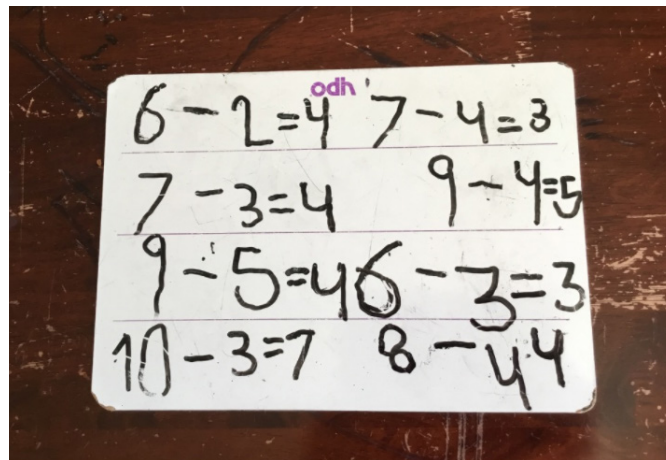 odh
6 - 2 = 4 7 - 4 = 3
7 - 3 = 4 9 - 4 = 5
9 - 5 = 4 6 - 3 = 3
10 - 3 = 7 8 - 4 4